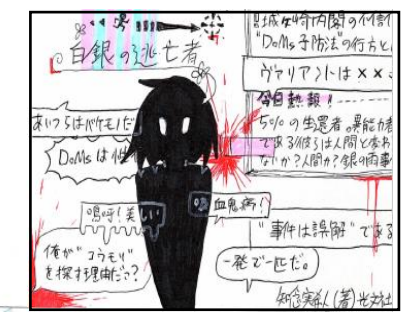 白銀の逃亡者
城ヶ崎内閣の
"DoMs予防法"の行方と
ヴァリアントは××
今日熱報!
5%の生還者。異能力者
である彼らは人間と
ないか?人間か?銀の雨事
あいつらはバケモノだ
DoMsは
嗚呼!美しい
血鬼病!
"事件は誤解"である
俺が"コウモリ"
を探す理由だって?
一発で一匹だ。
知念実希人(著)光文社